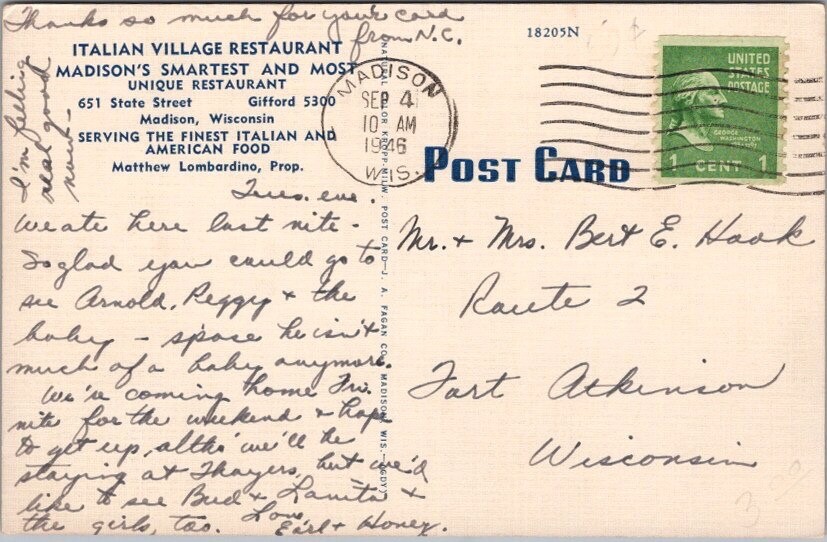 Thanks so much for your card
from N.C.
I'm feeling
real good
now -
ITALIAN VILLAGE RESTAURANT
MADISON'S SMARTEST AND MOST
UNIQUE RESTAURANT
651 State Street Gifford 5300
Madison, Wisconsin
SERVING THE FINEST ITALIAN AND
AMERICAN FOOD
Matthew Lombardino, Prop.
Tues. eve.
We ate here last nite -
So glad you could go to
see Arnold, Peggy & the
baby - spose he isn't
much of a baby anymore.
We're coming home Fri.
nite for the weekend & hope
to get up, altho' we'll be
staying at Thayers, but we'd
like to see Bud & Lanita &
the girls, too. Love
Earl & Honey.
NATURAL COLOR KROPP-MILW. POST CARD—J. A. FAGAN CO., MADISON, WIS.
18205N
MADISON
SEP 4
10 AM
1946
WIS.
POST CARD
UNITED
STATES
POSTAGE
GEORGE
WASHINGTON
1 CENT 1
Mr. & Mrs. Bert E. Hook
Route 2
Fort Atkinson
Wisconsin